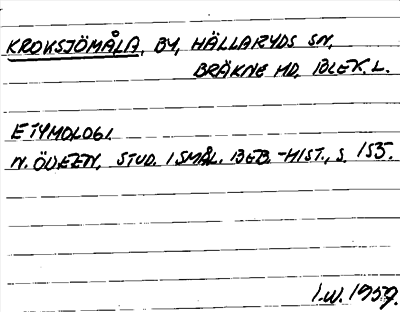 KROKSJÖMÅLA, BY, HÄLLARYDS SN,
BRÄKNE HD, BLEK. L.
ETYMOLOGI.
N. ÖDEEN, STUD. I SMÅL. BEB.-HIST., S. 155.
I.W. 1959.